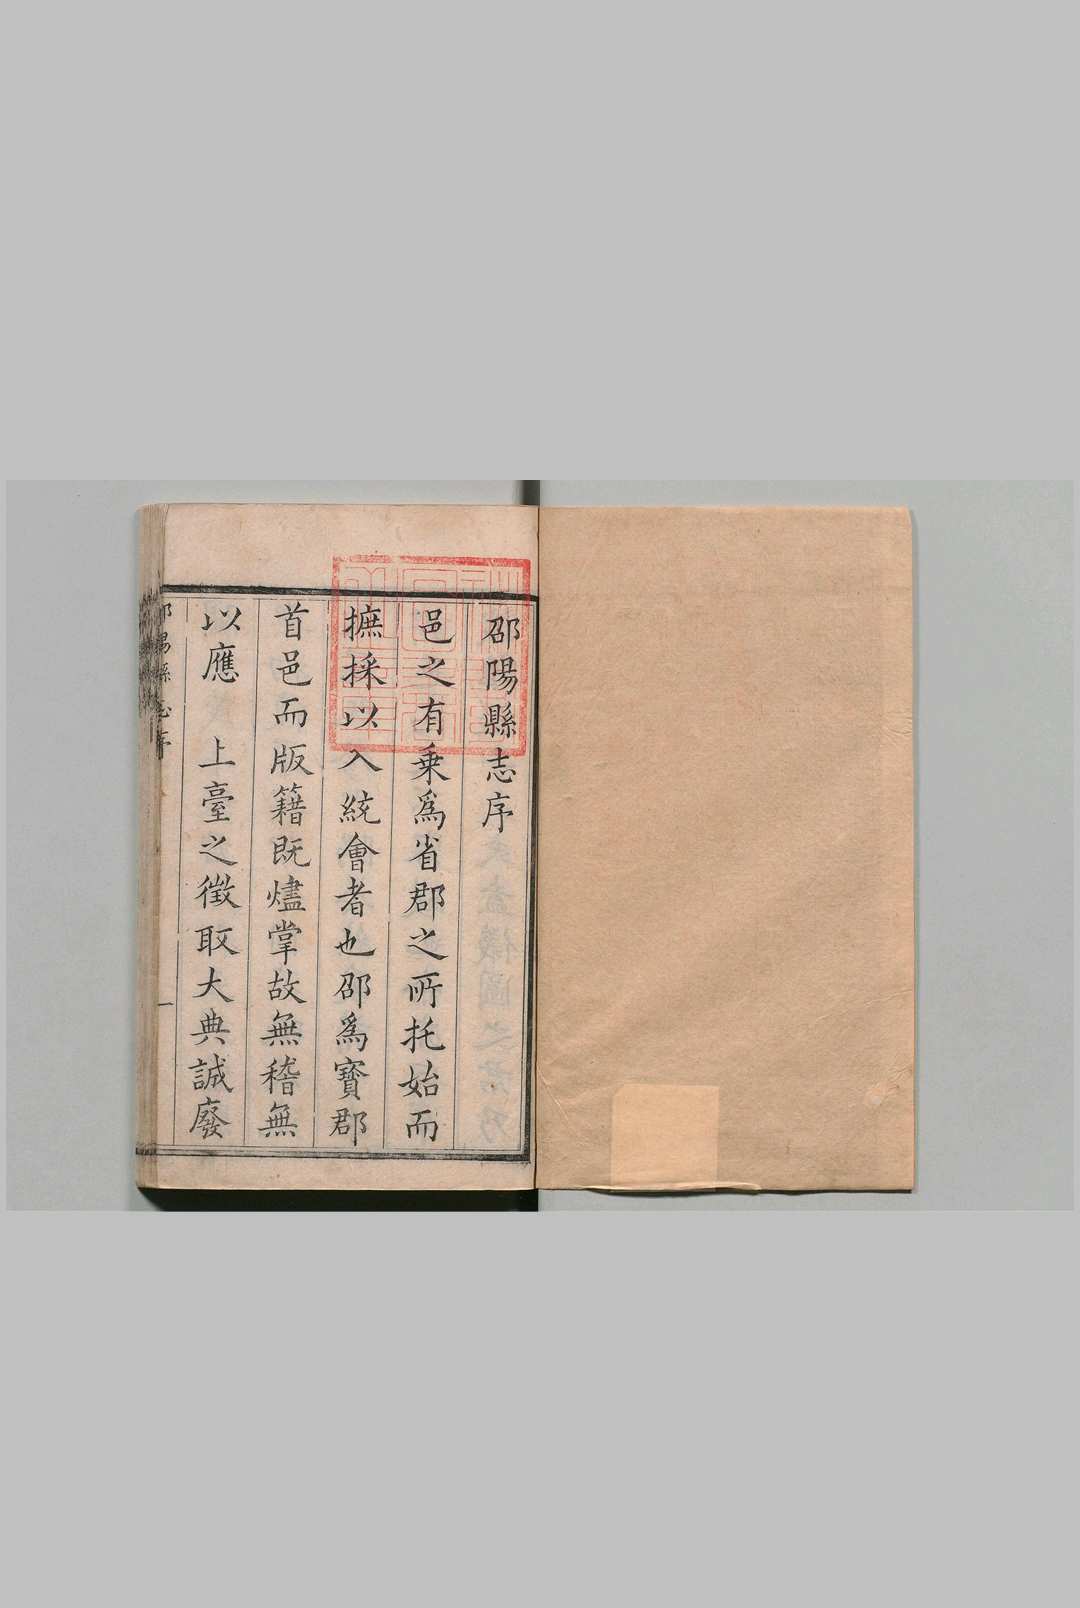 邵陽縣志序
邑之有乗爲省郡之所托始而
摭採以入統會者也邵爲寳郡
首邑而版籍既燼掌故無稽無
以應 上臺之徵取大典誠廢
陽縣志序
一